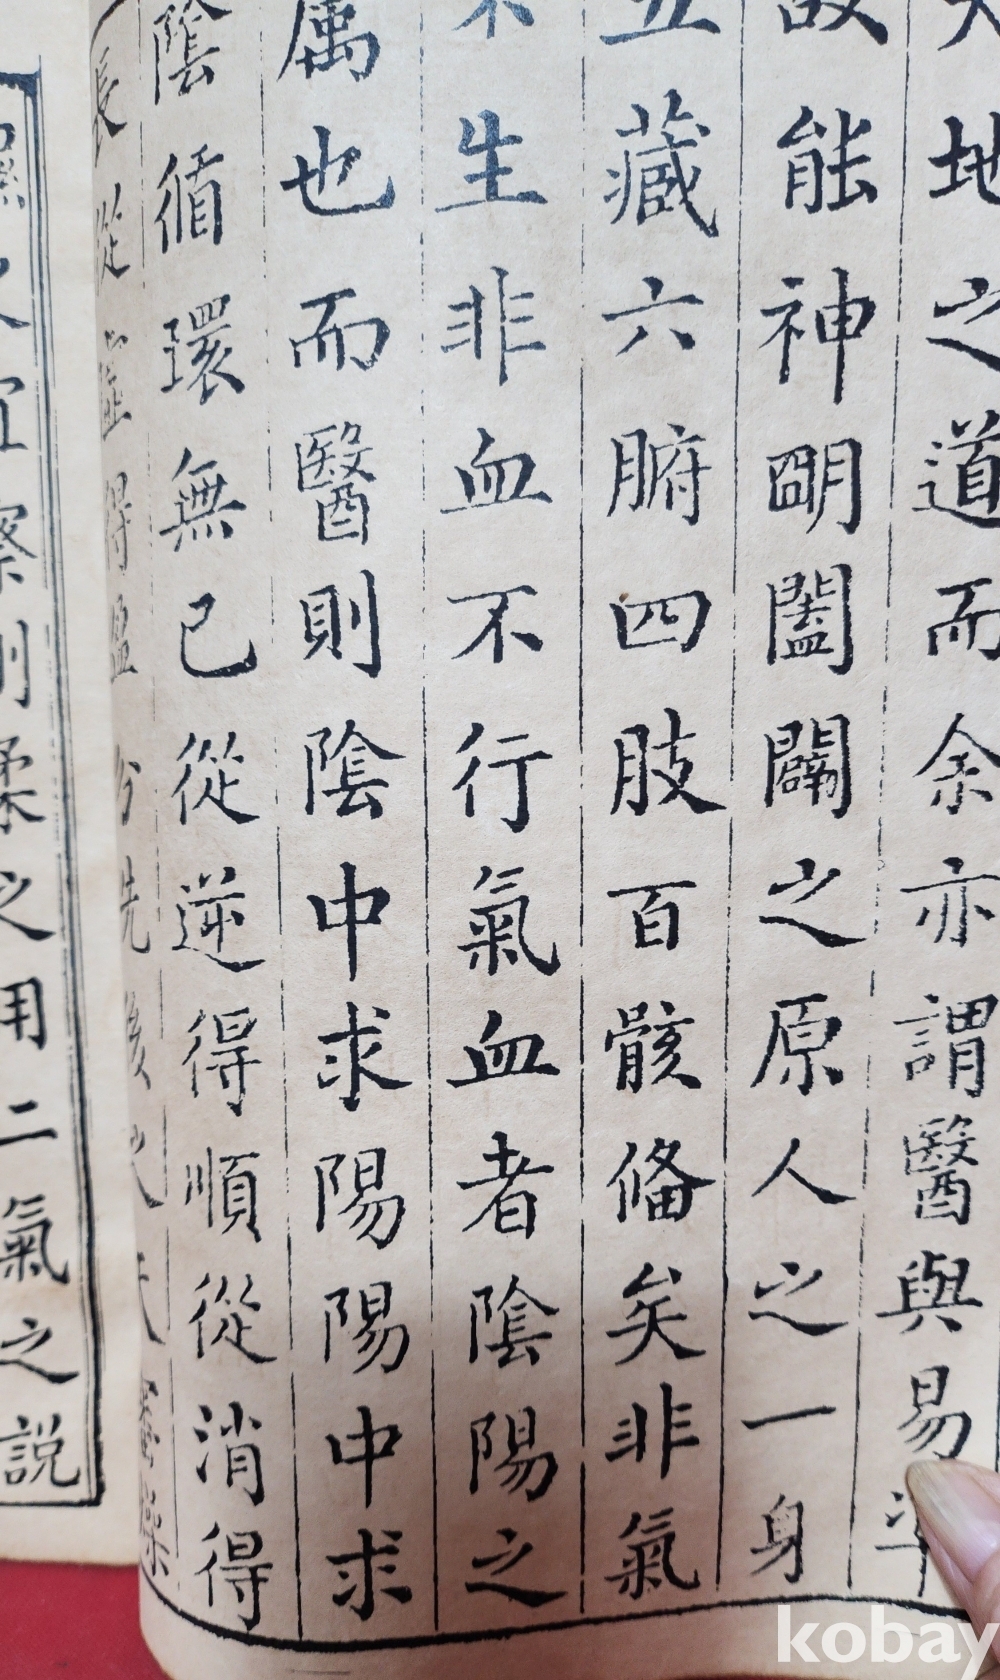 地之道而余亦謂醫與易
故能神明闔闢之原人之一身
五藏六腑四肢百骸備矣非氣
不生非血不行氣血者陰陽之
属也而醫則陰中求陽陽中求
陰循環無已從逆得順從消得
長從虛得盈
察剛柔之用二氣之説
kobay